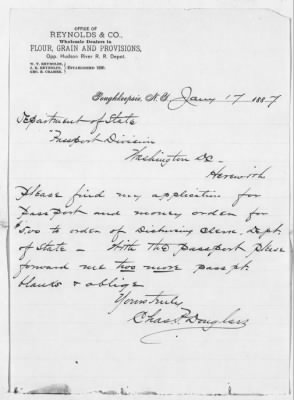 OFFICE OF
REYNOLDS & CO.,
Wholesale Dealers in
FLOUR, GRAIN AND PROVISIONS,
Opp. Hudson River R. R. Depot.
W. T. REYNOLDS,
J. R. REYNOLDS, ESTABLISHED 1820.
GEO. E. CRAMER,
Poughkeepsie, N. Y. Jany 17 1887
Department of State
Passport Division
Washington DC -
Herewith
Please find my application for
passport and money order for
$5.00 to order of Disbursing Clerk, Dept.
of State - With the passport please
forward me two more passpt.
blanks & oblige
Yours truly
Chas. P. Douglass